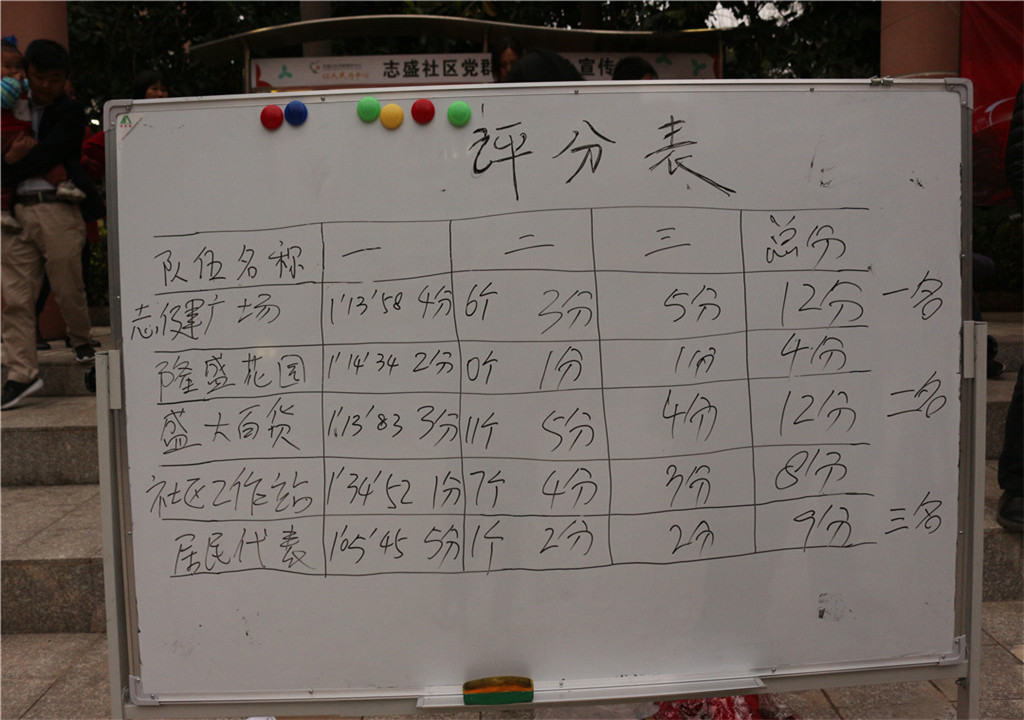 志盛社区党群
宣传
以人民为中心
评分表
队伍名称 一 二 三 总分
志健广场 1'13'58 4分 6个 3分 5分 12分 一名
隆盛花园 1'14'34 2分 0个 1分 1分 4分
盛大百货 1'13'83 3分 11个 5分 4分 12分 二名
社区工作站 1'34'52 1分 7个 4分 3分 8分
居民代表 1'05'45 5分 1个 2分 2分 9分 三名